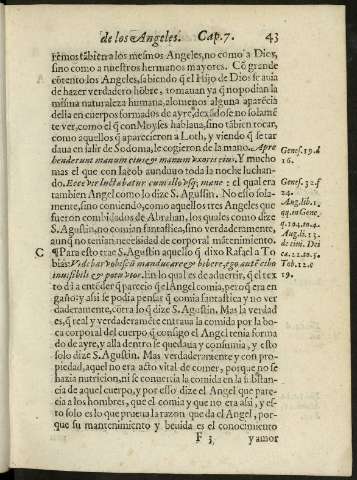 de los Angeles. Cap. 7. 43
remos tãbien a los mesmos Angeles, no como a Dios,
sino como a nuestros hermanos mayores. Cõ grande
cõtento los Angeles, sabiendo q̃ el Hijo de Dios se auia
de hazer verdadero hõbre, tomauan ya q̃ no podian la
misma naturaleza humana, alomenos alguna aparẽcia
della en cuerpos formados de ayre, dexãdose no solamẽ
te ver, como el q̃ con Moyses hablaua, sino tãbien tocar,
como aquellos q̃ aparecieron a Loth, y viendo q̃ se tar
daua en salir de Sodoma, le cogieron de la mano. Appre
henderunt manum eius & manum vxoris eius. Y mucho
mas el que con Iacob anduuo toda la noche luchan-
do. Ecce vir luctabatur cum illo vsq; mane: el qual era
tambien Angel como lo dize S. Agustin. No eso sola-
mente, sino comiendo, como aquellos tres Angeles que
fueron combidados de Abrahan, los quales como dize
S. Agustin, no comian fantastica, sino verdaderamente,
aunq̃ no tenian necessidad de corporal mãtenimiento.
C ¶Para esto trae S. Agustin aquello q̃ dixo Rafael a To
bias: Videbar vobiscũ manducare & bibere, ego autẽ cibo
inuisibili & potu vtor. En lo qual es de aduertir, q̃ el tex
to dà a entẽder q̃ parecio q̃ el Angel comia, pero q̃ era en
gaño: y assi se podia pensar q̃ comia fantastica y no ver
daderamente, cõtra lo q̃ dize S. Agustin. Mas la verdad
es, q̃ real y verdaderamẽte entraua la comida por la bo-
ca corporal del cuerpo q̃ consigo el Angel tenia forma
do de ayre, y alla dentro se quedaua y consumia, y esto
solo dize S. Agustin. Mas verdaderamente y con pro-
piedad, aquel no era acto vital de comer, porque no se
hazia nutricion, ni se conuertia la comida en la substan-
cia de aquel cuerpo, y por esso dize el Angel que pare-
cia a los hombres, que el comia y que no era assi, y es-
to solo es lo que prueua la razon que da el Angel, por-
que su mantenimiento y beuida es el conocimiento
F 3 y amor
Genes. 19. d
16.
Genes. 32. f
24.
Aug. lib. 1.
qq. in Gene
Aug. li. 13.
de ciui. Dei
ca. 22. to. 5.
Tob. 12. c
19.